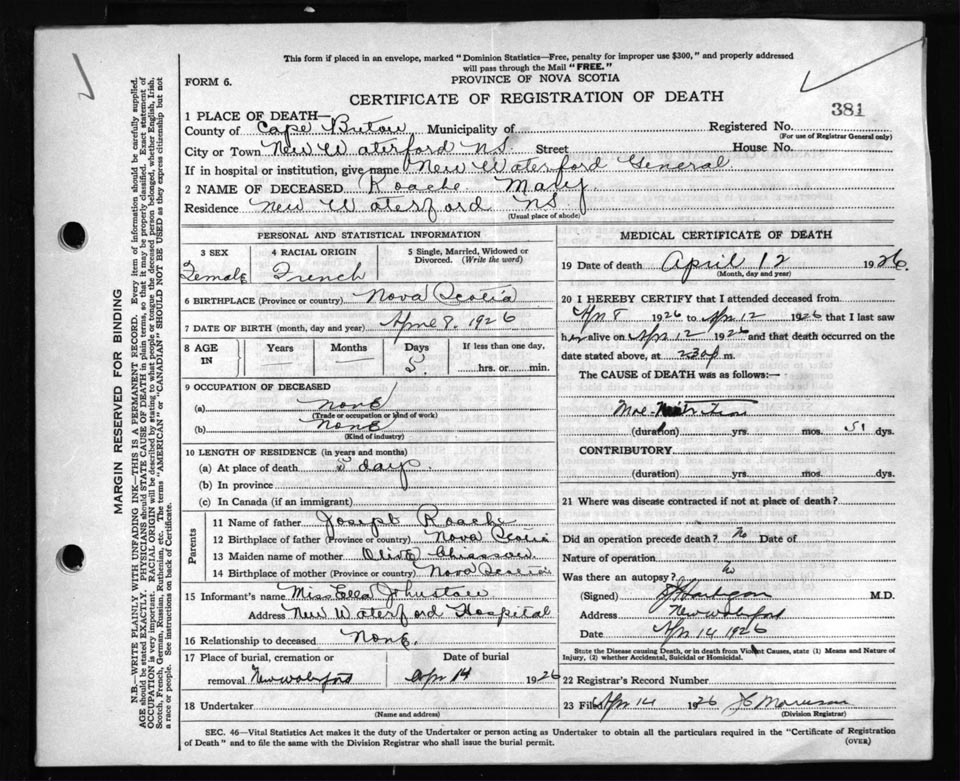 This form if placed in an envelope, marked "Dominion Statistics—Free, penalty for improper use $300," and properly addressed
will pass through the Mail "FREE."
FORM 6.
PROVINCE OF NOVA SCOTIA
CERTIFICATE OF REGISTRATION OF DEATH
381
1 PLACE OF DEATH—
County of Cape Breton Municipality of Registered No.
(For use of Registrar General only)
City or Town New Waterford N.S. Street House No.
If in hospital or institution, give name New Waterford General
2 NAME OF DECEASED Roache Mary
Residence New Waterford NS
(Usual place of abode)
PERSONAL AND STATISTICAL INFORMATION
3 SEX 4 RACIAL ORIGIN 5 Single, Married, Widowed or Divorced. (Write the word)
Female French
6 BIRTHPLACE (Province or country) Nova Scotia
7 DATE OF BIRTH (month, day and year) April 8. 1926
8 AGE IN Years Months Days If less than one day,
5. hrs. or min.
9 OCCUPATION OF DECEASED
(a) none
(Trade or occupation or kind of work)
(b) none
(Kind of industry)
10 LENGTH OF RESIDENCE (in years and months)
(a) At place of death 5 days.
(b) In province
(c) In Canada (if an immigrant)
Parents
11 Name of father Joseph Roache
12 Birthplace of father (Province or country) Nova Scotia
13 Maiden name of mother Olive Chiasson
14 Birthplace of mother (Province or country) Nova Scotia
15 Informant's name Miss Ella Johnston
Address New Waterford Hospital
16 Relationship to deceased None.
17 Place of burial, cremation or removal New Waterford
Date of burial Apr 14 1926
18 Undertaker
(Name and address)
MEDICAL CERTIFICATE OF DEATH
19 Date of death April 12 1926.
(Month, day and year)
20 I HEREBY CERTIFY that I attended deceased from
Apr 8 1926 to Apr 12 1926 that I last saw
her alive on Apr 12 1926 and that death occurred on the
date stated above, at 230 p m.
The CAUSE OF DEATH was as follows:—
(duration) yrs. mos. dys.
CONTRIBUTORY
(duration) yrs. mos. dys.
21 Where was disease contracted if not at place of death?
Did an operation precede death? No Date of
Nature of operation
Was there an autopsy? No
(Signed) M.D.
Address New Waterford
Date Apr 14 1926
State the Disease causing Death, or in death from Violent Causes, state (1) Means and Nature of
Injury, (2) whether Accidental, Suicidal or Homicidal.
22 Registrar's Record Number
23 Filed Apr 14 1926
(Division Registrar)
SEC. 46—Vital Statistics Act makes it the duty of the Undertaker or person acting as Undertaker to obtain all the particulars required in the "Certificate of Registration
of Death" and to file the same with the Division Registrar who shall issue the burial permit.
(OVER)
MARGIN RESERVED FOR BINDING
N.B.—WRITE PLAINLY WITH UNFADING INK—THIS IS A PERMANENT RECORD. Every item of information should be carefully supplied.
AGE should be stated EXACTLY. PHYSICIANS should STATE CAUSE OF DEATH in plain terms, so that it may be properly classified. Exact statement of
OCCUPATION is very important. RACIAL ORIGIN will be described by stating to what people or tongue the deceased person belonged, whether English, Irish,
Scotch, French, German, Russian, Ruthenian, etc. The terms "AMERICAN" or "CANADIAN" SHOULD NOT BE USED as they express citizenship but not
a race or people. See instructions on back of Certificate.